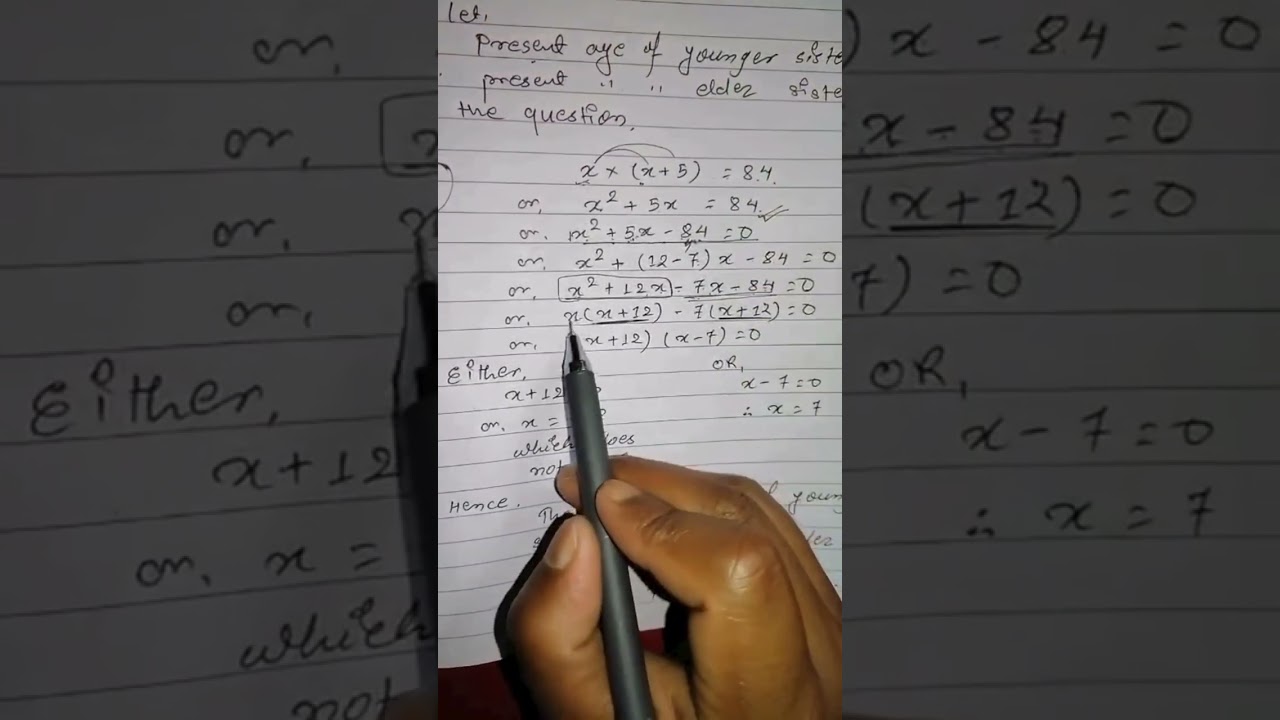 Let,
Present age of younger siste
present " " elder siste
the question,
x × (x + 5) = 84.
or, x² + 5x = 84.
or. x² + 5x - 84 = 0
or, x² + (12 - 7) x - 84 = 0
or, x² + 12x - 7x - 84 = 0
or, x (x + 12) - 7 (x + 12) = 0
or, x + 12) (x - 7) = 0
Either,
x + 12
or, x =
which does
not
OR,
x - 7 = 0
∴ x = 7
Hence.